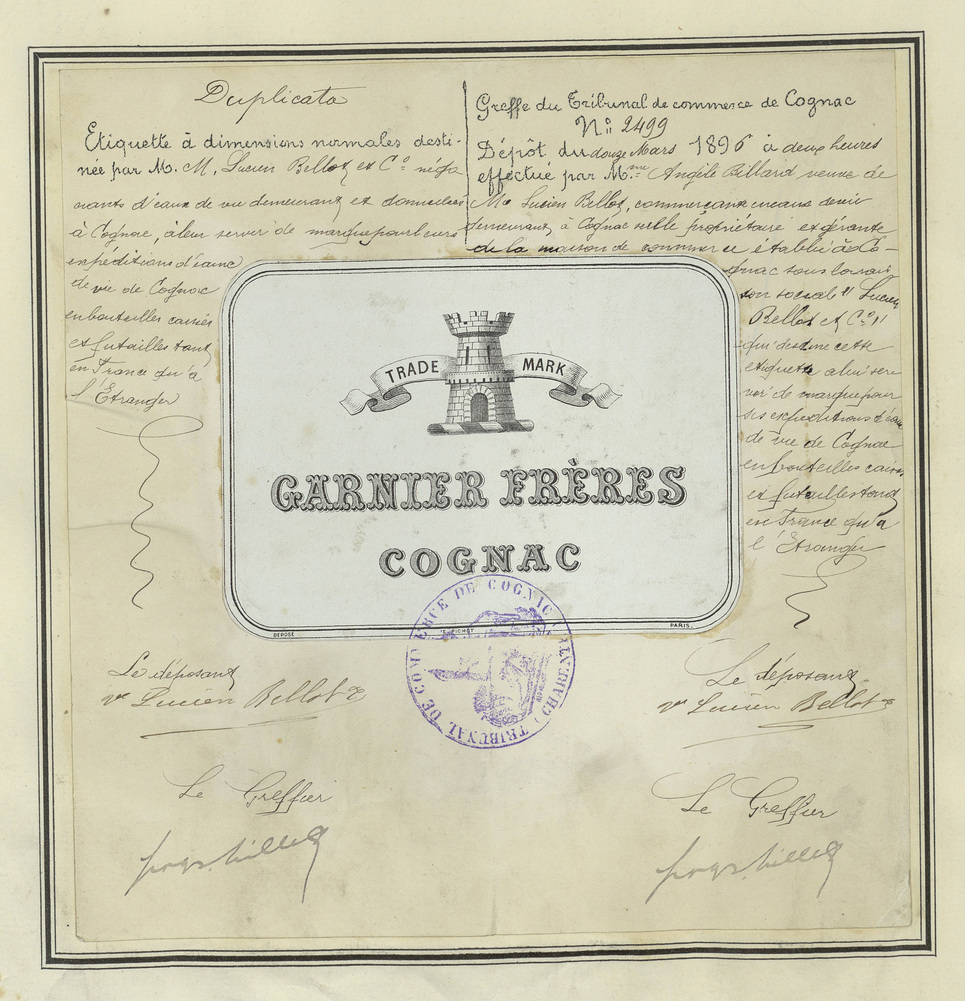 Duplicata
Etiquette à dimensions normales desti-
née par M. M. Lucien Bellot et Cº négo
ciants d'eaux de vie demeurant et domiciliés
à Cognac, à leur servir de marque pour leurs
expéditions d'eaux
de vie de Cognac
en bouteilles caisses
et futailles tant
en France qu'a
l'Étranger
Greffe du Tribunal de commerce de Cognac
Nº 2499
Dépôt du douze Mars 1896 à deux heures
effectué par Mme Angèle Billard veuve de
Mr Lucien Bellot, commerçante
demeurant à Cognac seule propriétaire et gérante
de la maison de commerce établie à Co-
gnac sous la rai
son sociale "Lucien
Bellot et Cº"
qui destine cette
etiquette a lui ser
vir de marque pour
ses expéditions d'eau
de vie de Cognac
en bouteilles caisses
et futailles tant
en France qu'a
l'Étranger
TRADE MARK
GARNIER FRÈRES
COGNAC
DÉPOSÉ
PICHOT
PARIS.
TRIBUNAL DE COMMERCE DE COGNAC (CHARENTE)
Le déposant
ve Lucien Bellot
Le déposant
ve Lucien Bellot
Le Greffier
Le Greffier